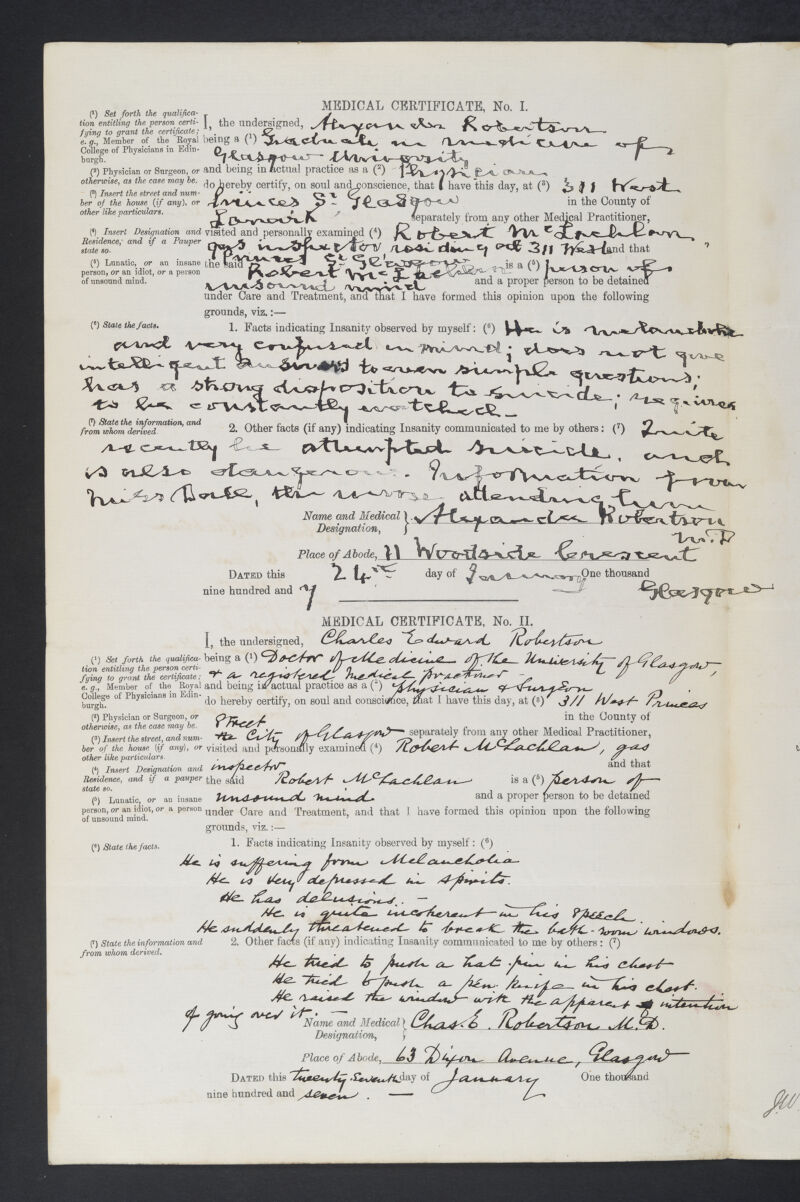 MEDICAL CERTIFICATE, No. I.
(1) Set forth the qualifica-
tion entitling the person certi-
fying to grant the certificate;
e.g., Member of the Royal
College of Physicians in Edin-
burgh.
(2) Physician or Surgeon, or
otherwise, as the case may be.
(3) Insert the street and num-
ber of the house (if any), or
other like particulars.
(4) Insert Designation and
Residence, and if a Pauper
state so.
(5) Lunatic, or an insane
person, or an idiot, or a person
of unsound mind.
I, the undersigned, Alexander Robertson
being a (1) Graduate in medicine of
Glasgow University
and being in actual practice as a (2) Physician
do hereby certify, on soul and conscience, that I have this day, at (3) 311 West
Princes St. Glasgow in the County of
Lanark separately from any other Medical Practitioner,
visited and personally examined (4) Robert McLachlan,
gas inspector residing at 311 West and that
Princes St Glasgow
the said Robert McLachlan is a (5) person of
unsound mind and a proper person to be detained
under Care and Treatment, and that I have formed this opinion upon the following
grounds, viz.:—
(6) State the facts.
1. Facts indicating Insanity observed by myself: (6) He is melancholic
and very confused in mind; does not give
intelligent answers to even simple questions;
has a strong disposition to suicide; requires
to be constantly watched—
(7) State the information, and
from whom derived.
2. Other facts (if any) indicating Insanity communicated to me by others: (7) Quite
recently he attempted suicide, and
is also dangerous. Information from
Miss the nurse attending him
Name and Medical Designation, Alexander Robertson
M.D
Place of Abode, 11 Woodside Crescent
Glasgow
DATED this 24th day of January One thousand
nine hundred and 7
MEDICAL CERTIFICATE, No. II.
(1) Set forth the qualifica-
tion entitling the person certi-
fying to grant the certificate;
e.g., Member of the Royal
College of Physicians in Edin-
burgh.
(2) Physician or Surgeon, or
otherwise, as the case may be.
(3) Insert the street, and num-
ber of the house (if any), or
other like particulars.
(4) Insert Designation and
Residence, and if a pauper
state so.
(5) Lunatic, or an insane
person, or an idiot, or a person
of unsound mind.
I, the undersigned, Charles Edward Robertson
being a (1) Doctor of Medicine of the University of Glasgow,
& a registered medical practioner
and being in actual practice as a (2) Physician & Surgeon
do hereby certify, on soul and conscience, that I have this day, at (3) 311 West Princes
Street in the County of
the City of Glasgow separately from any other Medical Practitioner,
visited and personally examined (4) Robert McLachlan, gas
inspector and that
the said Robert McLachlan is a (5) person of
unsound mind and a proper person to be detained
under Care and Treatment, and that I have formed this opinion upon the following
grounds, viz.:—
(6) State the facts.
1. Facts indicating Insanity observed by myself: (6)
He is suffering from Melancholia
He is very depressed in spirits.
He has delusions. —
He is quite incoherent in his speech.
He suddenly threatened to break the bath-room windows.
(7) State the information and
from whom derived.
2. Other facts (if any) indicating Insanity communicated to me by others: (7)
He tried to push a hat-pin in his chest
He tried to push a pen knife in his chest.
He raised the window with the apparent intention
of going over it. —
Name and Medical Designation, Chas. E. Robertson M.D.
Place of Abode, 63 Dixon Avenue, Glasgow
DATED this twenty seventh day of January One thousand
nine hundred and seven. —